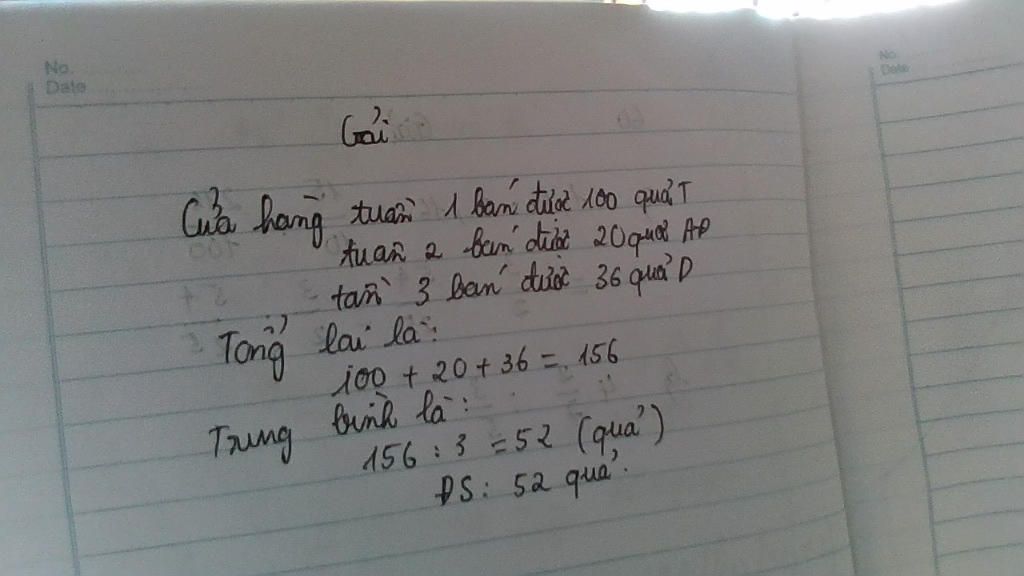 No.
Date
No.
Date
Gải
Cửa hang tuần 1 bán được 100 quả T
tuần 2 bán được 20 quả AP
tần 3 bán được 36 quả D
Tổng lai là:
100 + 20 + 36 = 156
Trung bình là:
156 : 3 = 52 (quả)
ĐS: 52 quả.